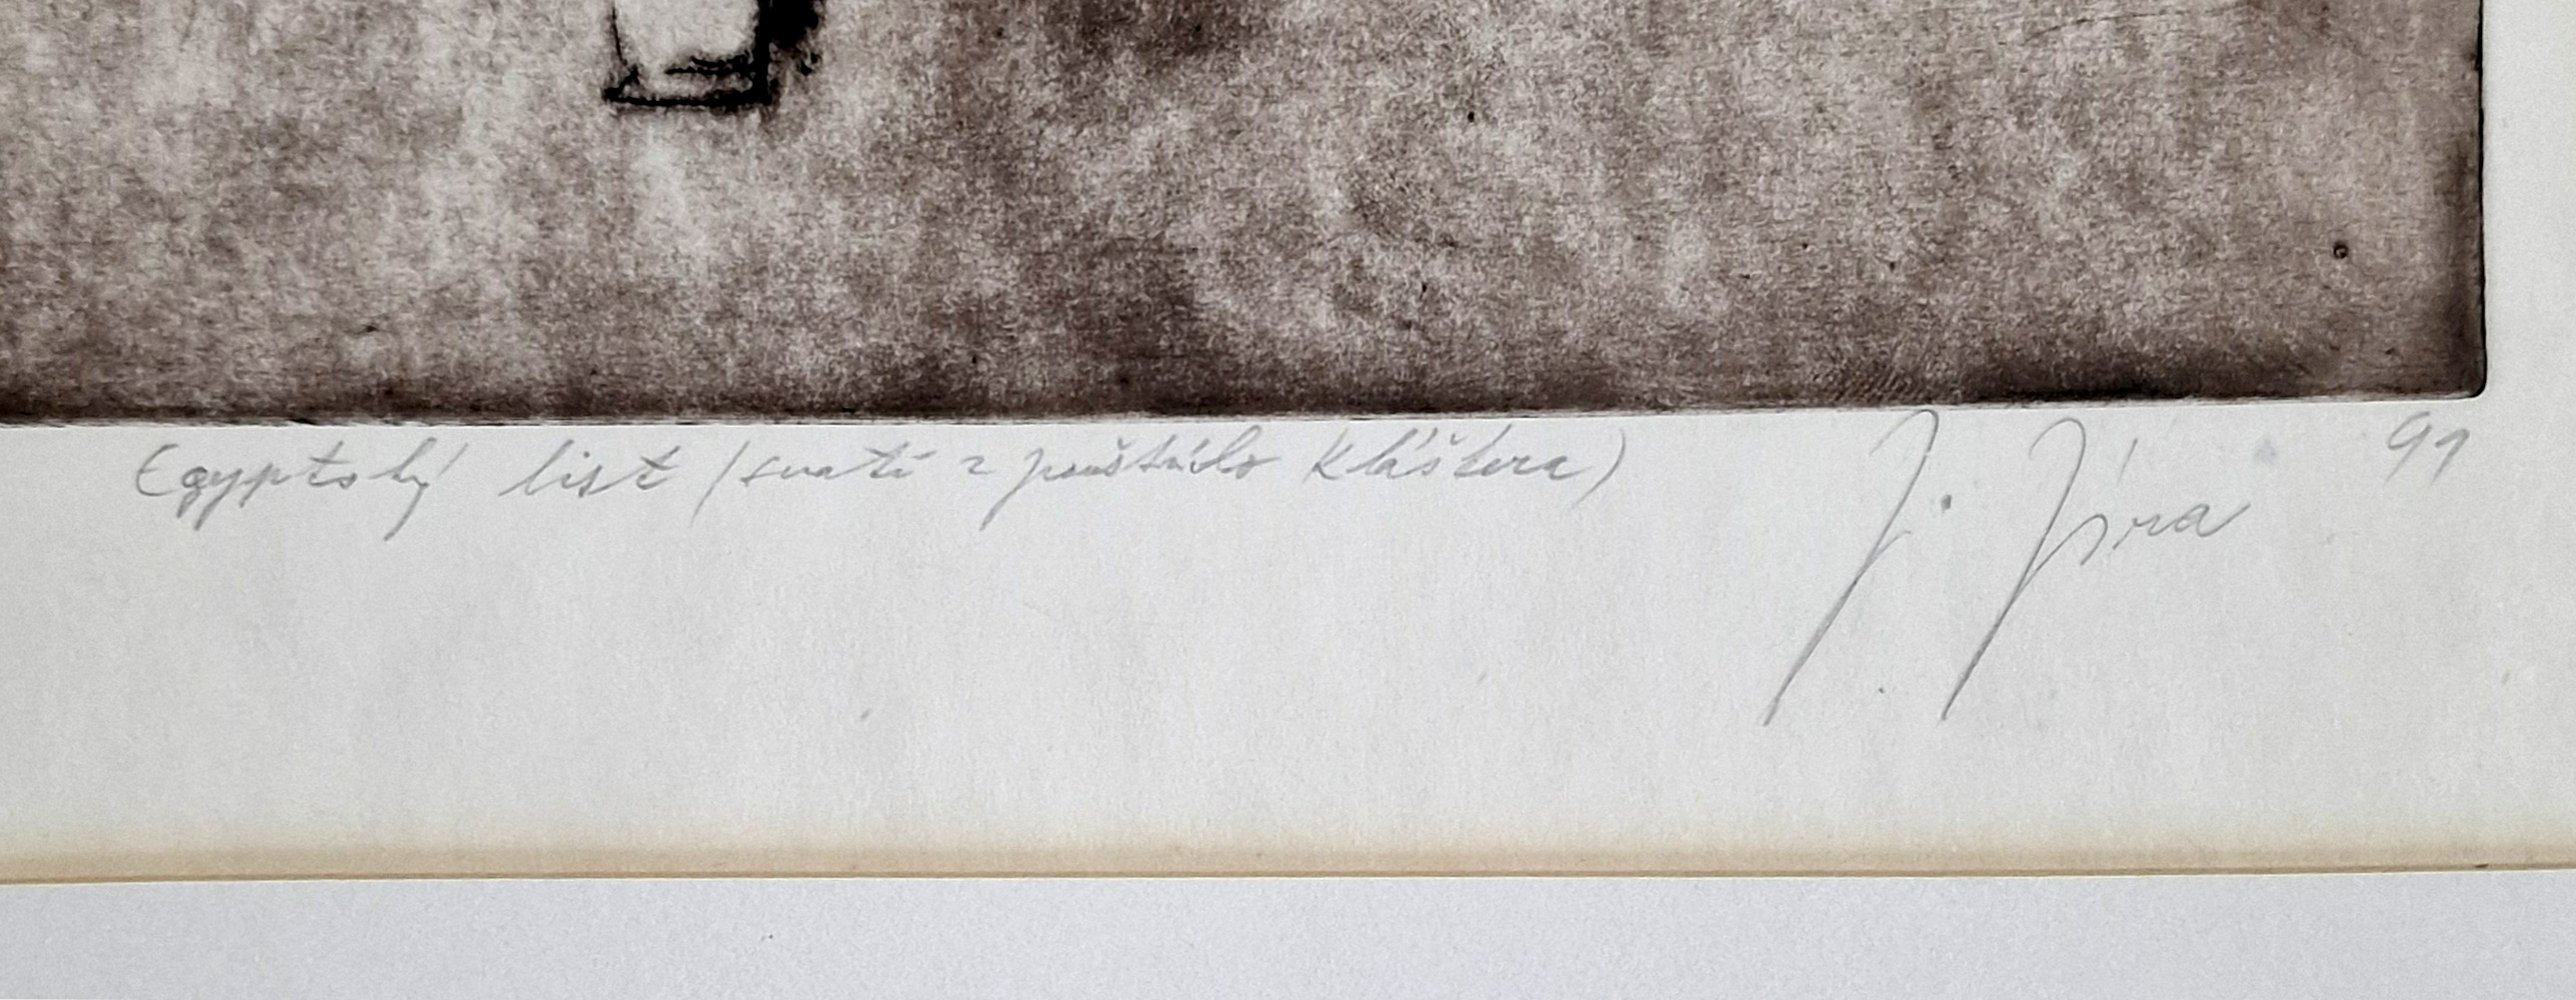 Egyptský list (svatí z pouštního kláštera) J. Jíra 91